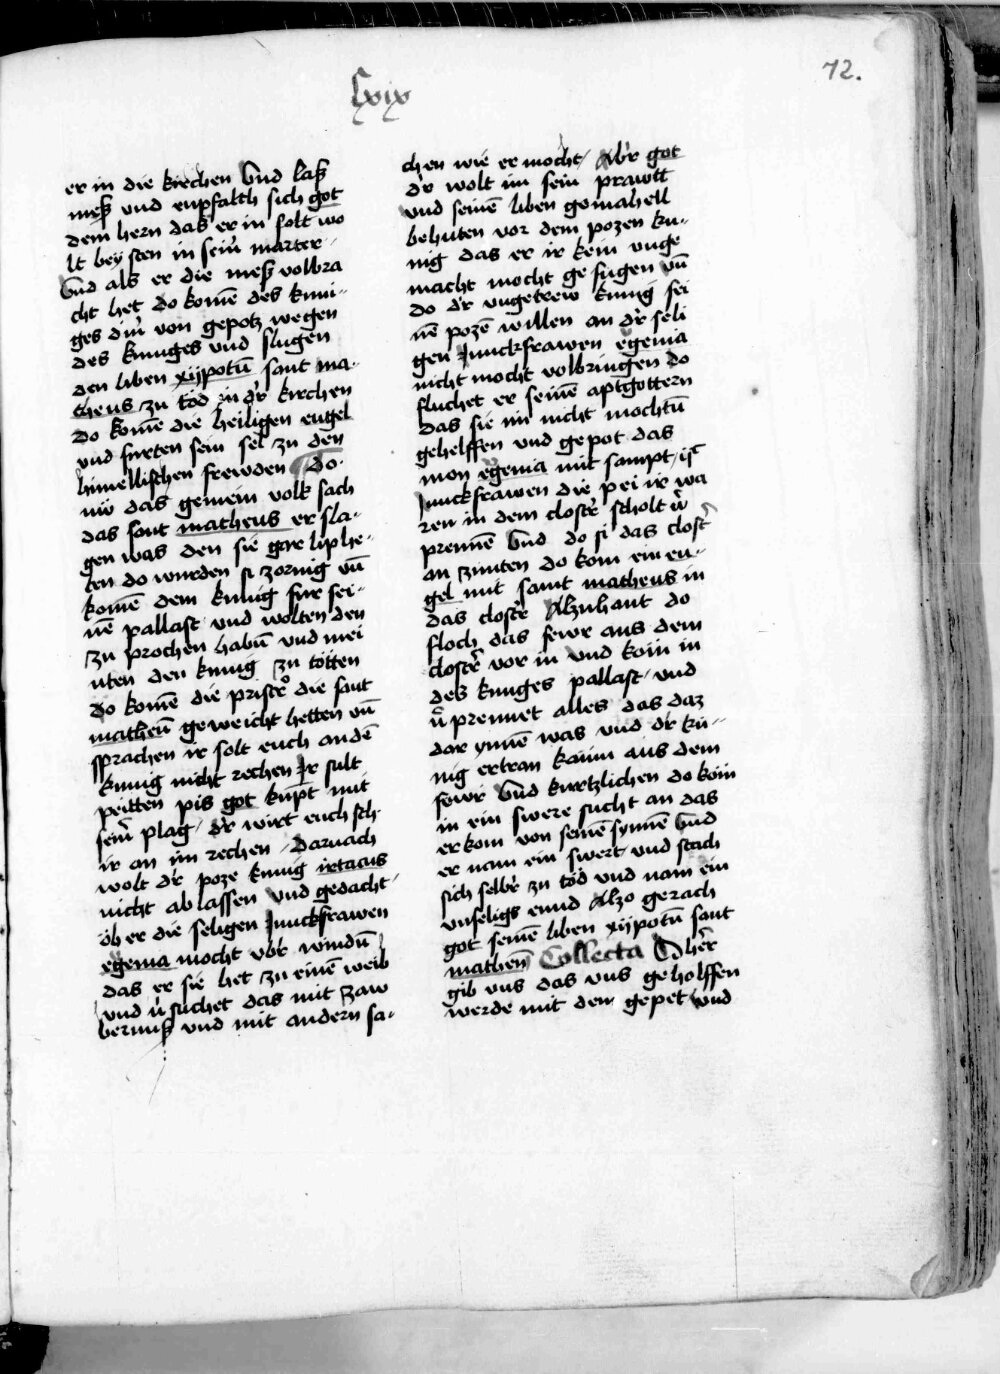 72.
lxix
er in die kirchen Und laß
meß vnd enpfalth sich got
dem hern das er in solt wo
lt bey sten in seiner marter
Und als er die meß volbra
cht het do komē des kuni-
ges diner von gepotz wegen
des kuniges vnd slugen
den liben xijpotū sant ma-
theus zu tod in dr kirchen
do komē die heiligen engel
vnd furten sein sel zu den
himellischen frewden Do
nw das gemein volk sach
das sant matheus er sla-
gen was den sie gar lip he-
ten do wurden si zornig vn̄
komē dem kunig fur sei-
nē pallast vnd wolten den
zu prochen habn̄ vnd mei
nten den kunig zu totten
do komē die pristeer die sant
matheū geweicht hetten vn̄
sprachen ir solt euch an dē
kunig nicht rechen Ir sult
peitten pis got kupt mit
seiner plag dr wirt euch sch
ir an im rechen Darnach
wolt dr poze kunig irtacus
nicht ab lassen Vnd gedacht
ob er die seligen Junckfrawen
egenia mocht vbr windn̄
das er sie het zu einē weib
vnd v̉suchet das mit zaw
bernuß vnd mit andern sa-
chen wie er mocht Abr got
dr wolt im sein prawtt
vnd seinē liben gemahell
behuten vor dem pozen ku-
nig das er ir kein vnge
macht mocht ge fugen vn̄
do dr vngetrew kunig sei
nē pozē willen an dr seli
gen Junckfrawen egenia
nicht mocht volbringen do
fluchet er seinē aptgottern
das sie im nicht mochtn̄
gehelffen vnd gepot das
mon egenia mit sampt ir
Junckfrawen die pei ir wa
ren in dem closter scholt v̉
prennē Vnd do si das closter
an zunten do kom ein en-
gel mit sant matheus in
das closter Alzuhant do
floch das fewr aus dem
closter vor in vnd kom in
deß kuniges pallast vnd
v̉prennet alles das daz
dar ynnē was vnd dr ku-
nig ertran kaum aus dem
fewr Vnd kurtzlichen do kom
in ein swere sucht an das
er kom von seinē synnē Vnd
er nam ein swert vnd stach
sich selbr zu tod vnd nam ein
vnseligs ennd Alzo gerach
got seinē liben xijpotū sant
matheū Collecta O herr
gib vns das vns geholffen
werde mit dem gepet vnd